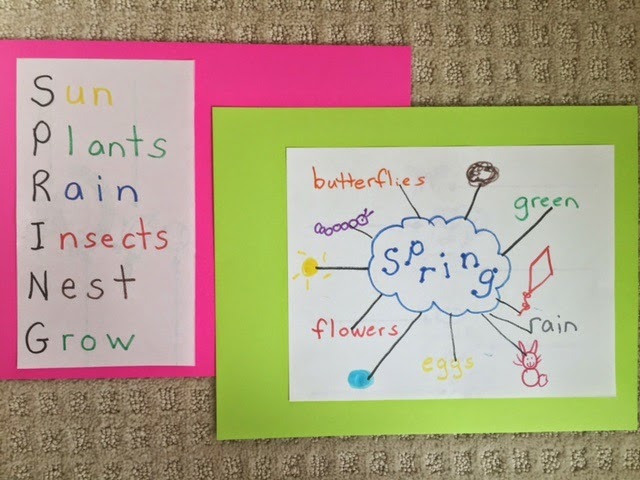 Sun
Plants
Rain
Insects
Nest
Grow
butterflies
green
Spring
flowers
rain
eggs